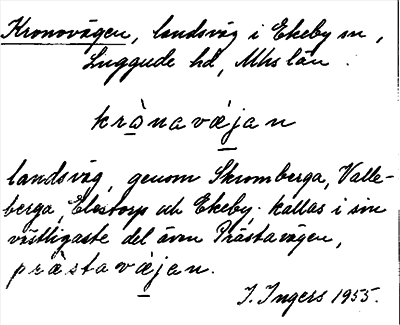 Kronovägen, landsväg i Ekeby sn,
Luggude hd, Mhs län.
krò̱navæ̱jan
landsväg, genom Skromberga, Valle-
berga, Elestorp och Ekeby; kallas i sin
västligaste del även Prästavägen,
præ̀stavæ̱jan.
I. Ingers 1955.